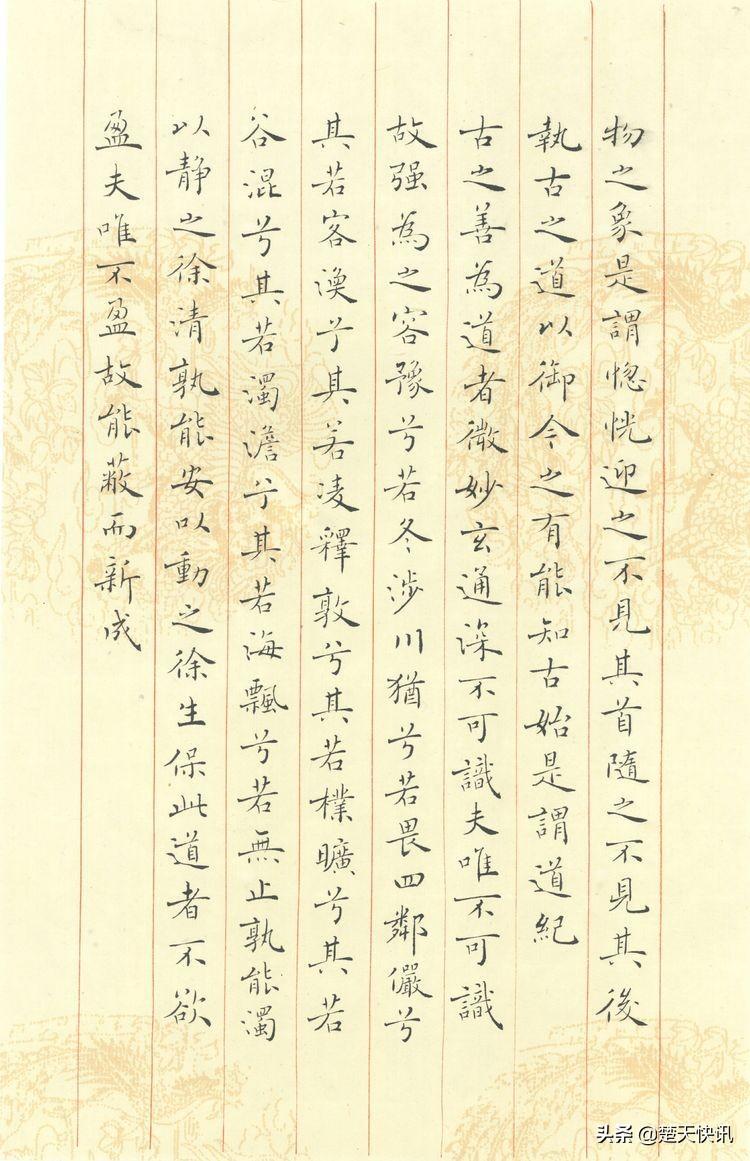 物之象是謂惚恍迎之不見其首隨之不見其後
執古之道以御今之有能知古始是謂道紀
古之善為道者微妙玄通深不可識夫唯不可識
故强為之容豫兮若冬涉川猶兮若畏四鄰儼兮
其若客渙兮其若凌釋敦兮其若樸曠兮其若
谷混兮其若濁澹兮其若海飄兮若無止孰能濁
以静之徐清孰能安以動之徐生保此道者不欲
盈夫唯不盈故能蔽而新成
头条 @楚天快讯